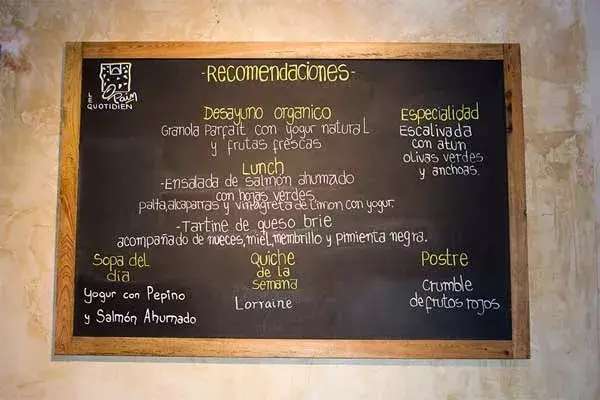 LE
Pain
QUOTIDIEN
-Recomendaciones-
Desayuno organico
Granola Parfait con yogur natural
y frutas frescas
Especialidad
Escalivada
con atun
olivas verdes
y anchoas.
Lunch
-Ensalada de salmón ahumado
con hojas verdes
palta, alcaparras y vinagreta de limon, con yogur.
-Tartine de queso brie
acompañado de nueces, miel, membrillo y pimienta negra.
Sopa del
día
Yogur con Pepino
y Salmón Ahumado
Quiche
de la
semana
Lorraine
Postre
Crumble
de frutos rojos